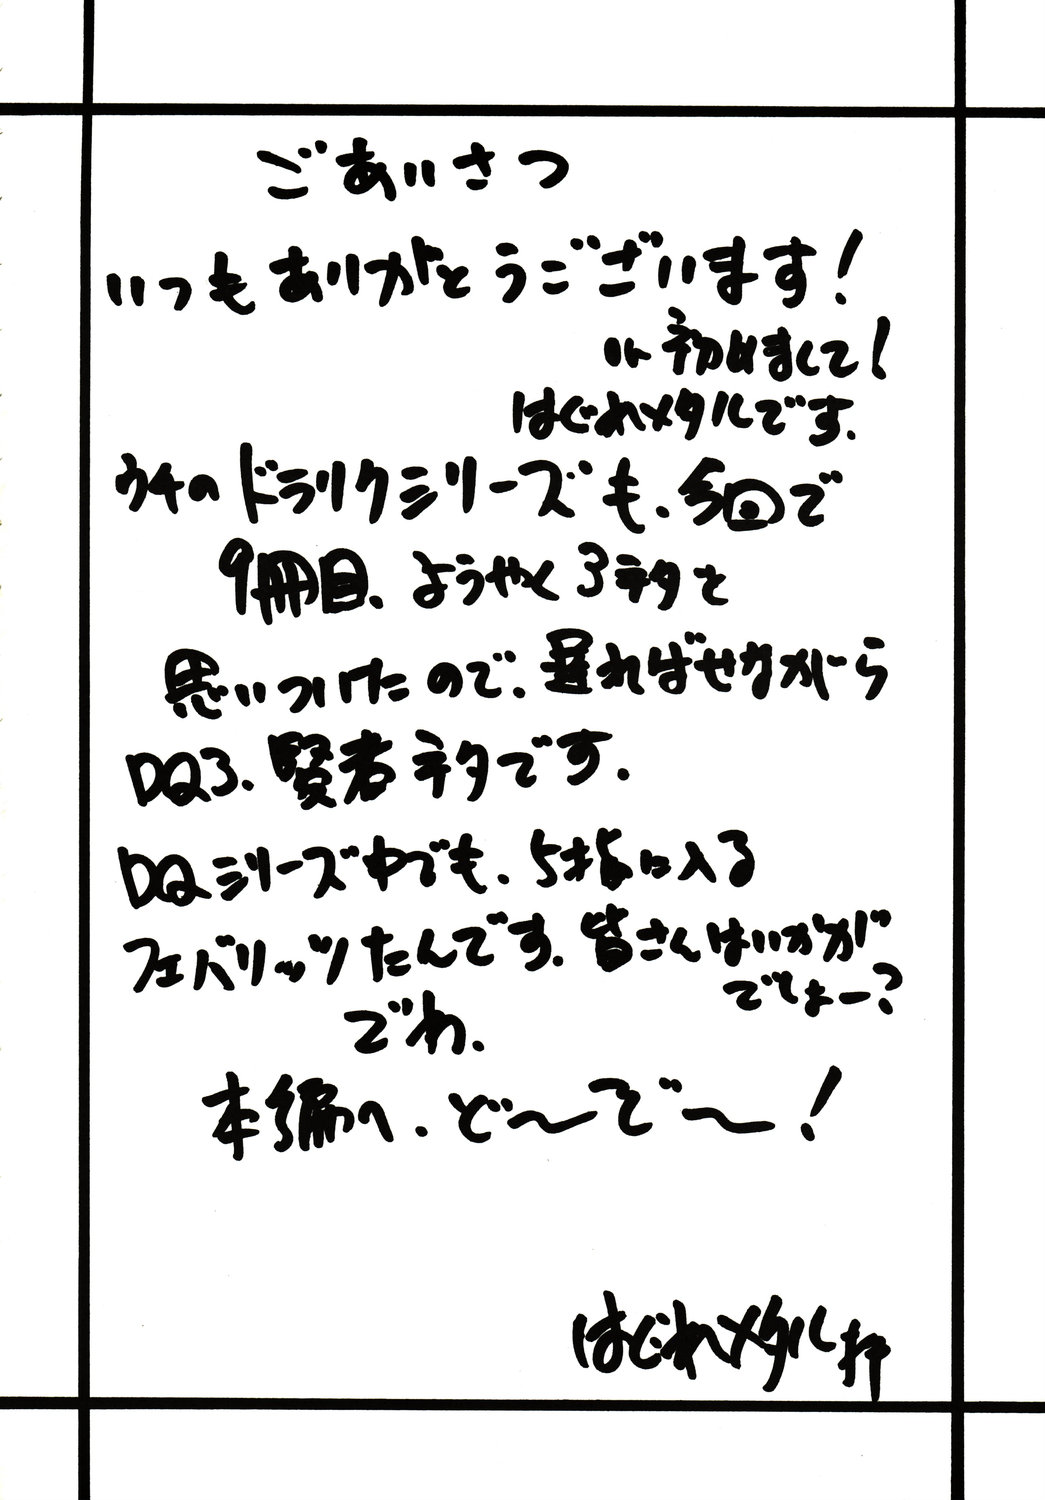 ごあいさつ
いつもありがとうございます!
初めまして!
はぐれメタルです.
ウチのドラクシリーズも、今回で
9冊目、ようやく3ネタを
思いつけたので、遅ればせながら
DQ3、賢者ネタです.
DQシリーズ中でも、5指に入る
フェバリッツたんです.皆さんはいかが
でしょー?
でわ、
本編へ、ど〜ぞ〜!
はぐれメタル拝